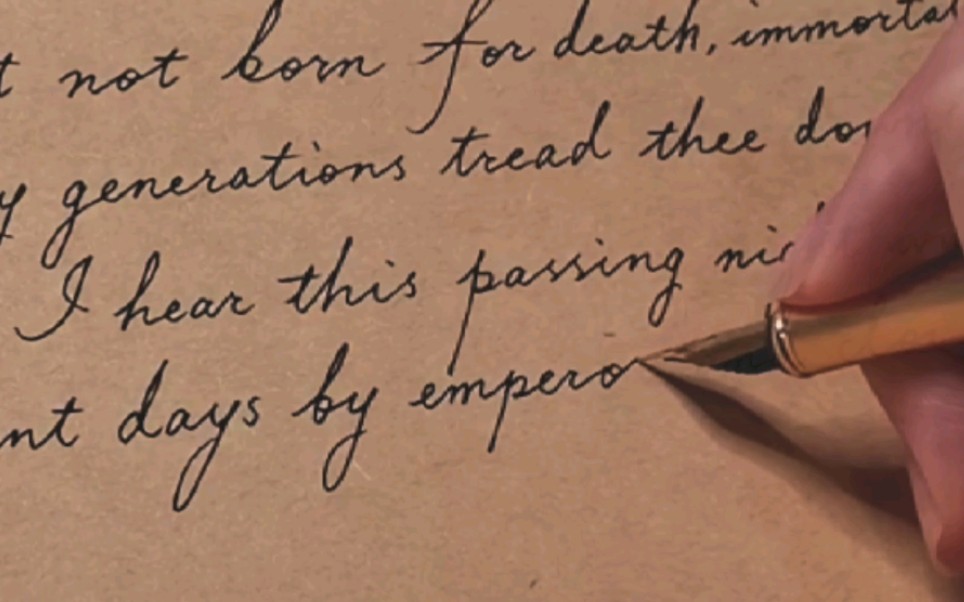 not born for death, immortal
generations tread thee
I hear this passing
days by empero